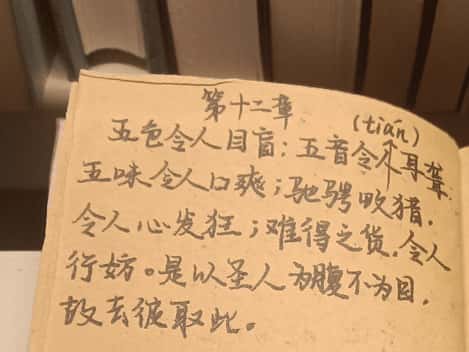 第十二章
(tián)
五色令人目盲；五音令人耳聋；
五味令人口爽；驰骋畋猎，
令人心发狂；难得之货，令人
行妨。是以圣人为腹不为目，
故去彼取此。